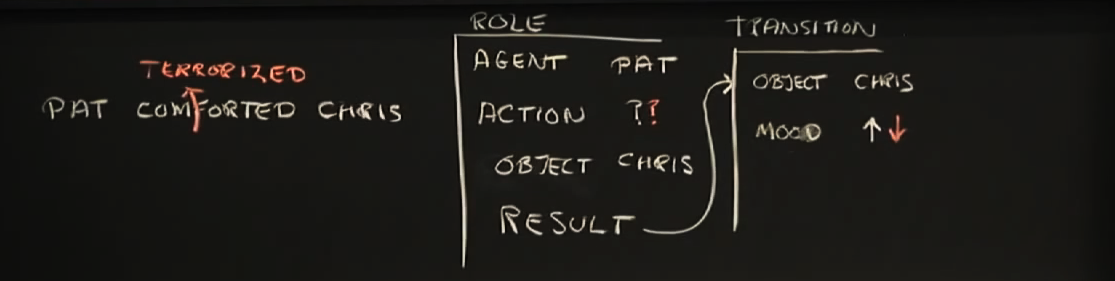 TERRORIZED
PAT COMFORTED CHRIS
ROLE
AGENT PAT
ACTION ??
OBJECT CHRIS
RESULT
TRANSITION
OBJECT CHRIS
MOOD ↑↓